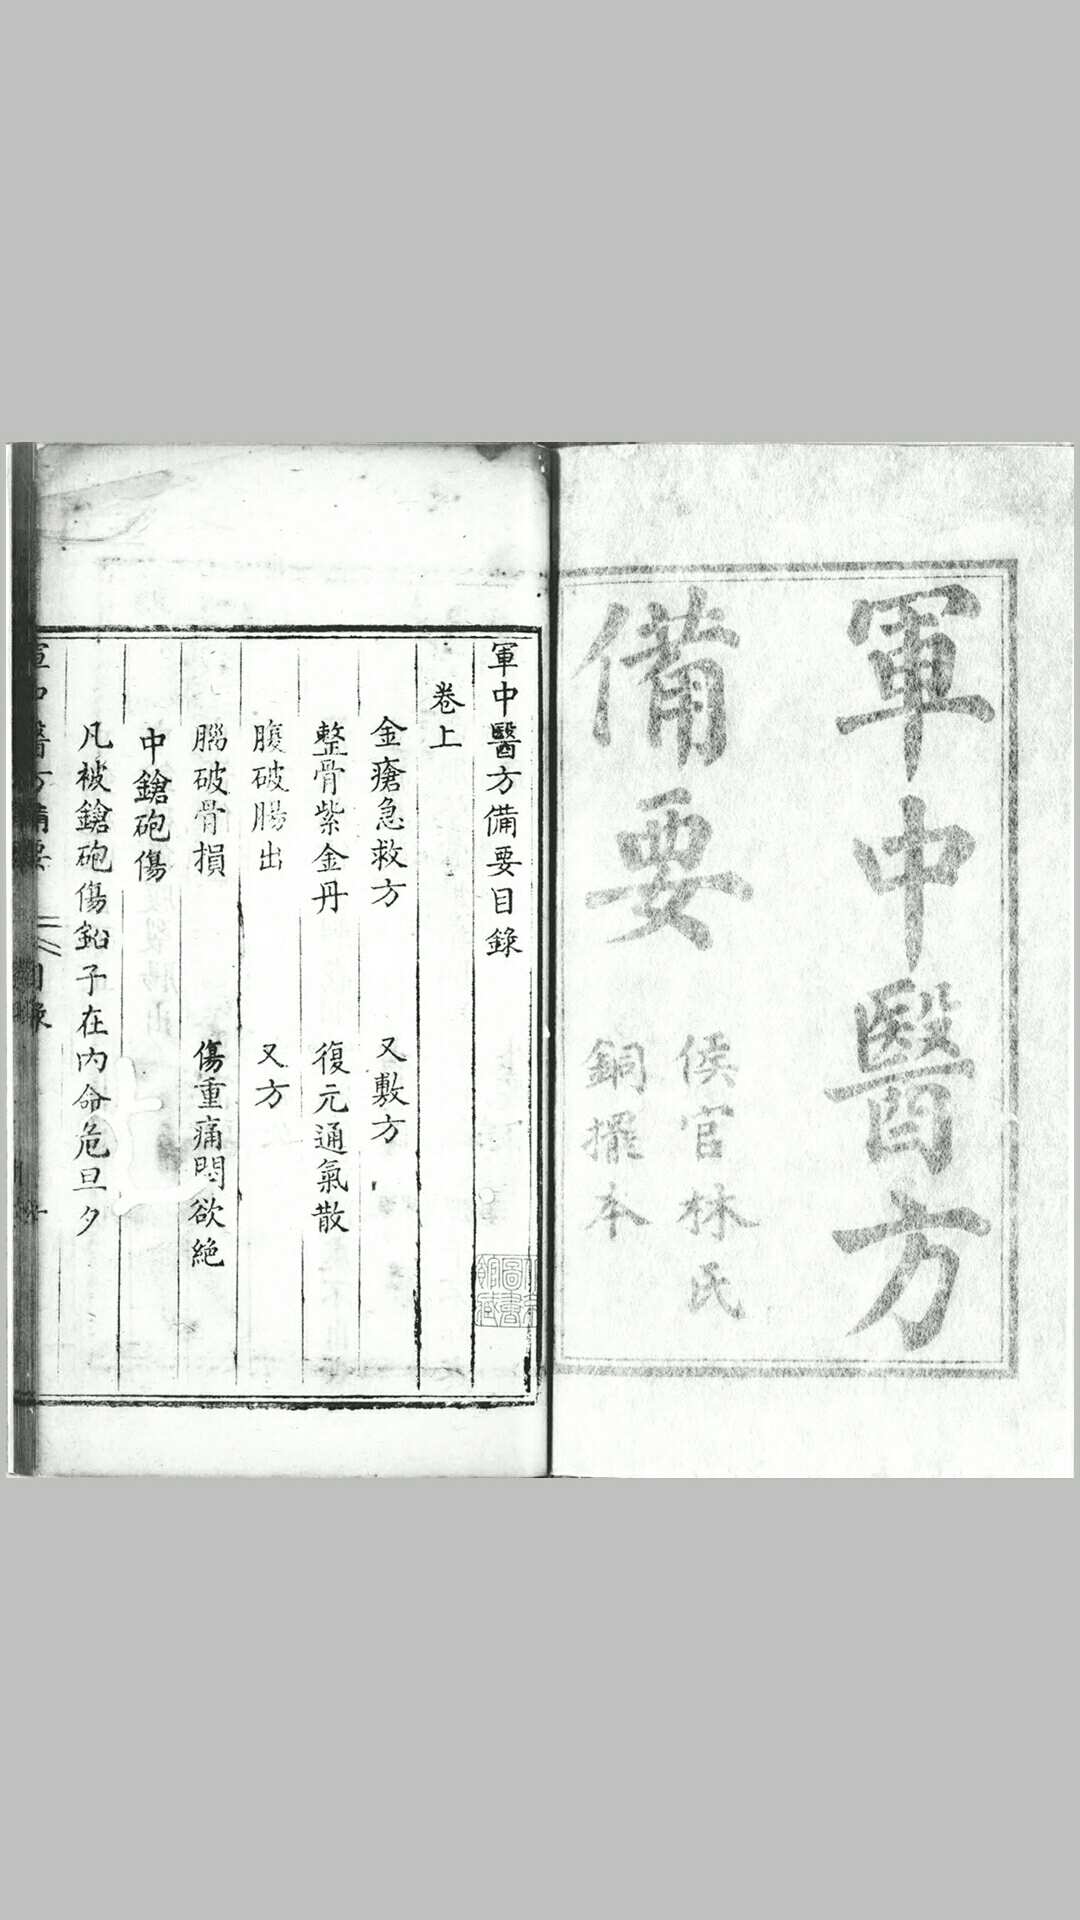 軍中醫方
備要
侯官林氏
銅擺本
軍中醫方備要目錄
卷上
金瘡急救方 又敷方
整骨紫金丹 復元通氣散
腹破腸出 又方
腦破骨損 傷重痛悶欲絕
中鎗砲傷
凡被鎗砲傷鉛子在內命危旦夕
軍中醫方備要 目錄